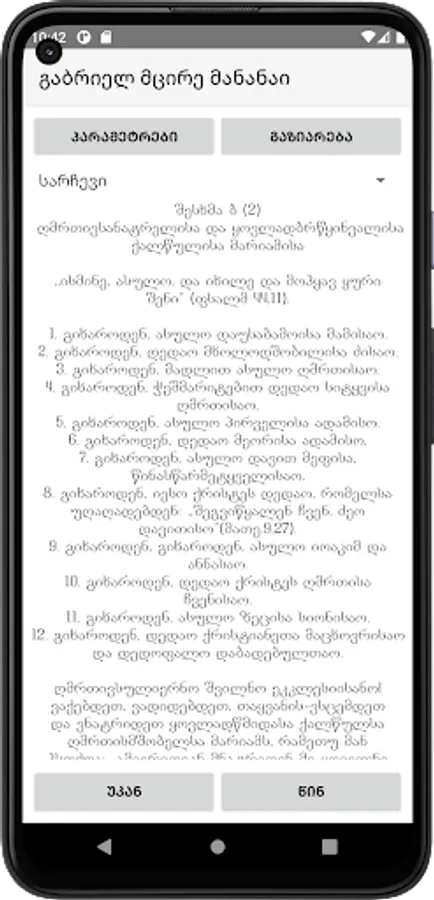 10:42
გაბრიელ მცირე მანანაი
პარამეტრები
გაზიარება
სარჩევი
შესხმა ბ (2)
ღმრთივსანატრელისა და ყოვლადბრწყინვალისა
ქალწულისა მარიამისა
„ისმინე, ასულო, და იხილე და მოჰყავ ყური
შენი" (ფსალმ 44,11).
1. გიხაროდენ, ასულო დაუსაბამოისა მამისაო.
2. გიხაროდენ, დედაო მხოლოდშობილისა ძისაო.
3. გიხაროდენ, მადლით ასულო ღმრთისაო.
4. გიხაროდენ, ჭეშმარიტებით დედაო სიტყვისა
ღმრთისაო.
5. გიხაროდენ, ასულო პირველისა ადამისო.
6. გიხაროდენ, დედაო მეორისა ადამისო.
7. გიხაროდენ, ასულო დავით მეფისა,
წინასწარმეტყველისაო.
8. გიხაროდენ, იესო ქრისტეს დედაო, რომელსა
უღაღადებდენ: „შეგვიწყალენ ჩვენ, ძეო
დავითისო"(მათე,9,27).
9. გიხაროდენ, გიხაროდენ, ასულო იოაკიმ და
ანნასაო.
10. გიხაროდენ, დედაო ქრისტეს ღმრთისა
ჩვენისაო.
11. გიხაროდენ, ასულო ზეცისა სიონისაო.
12. გიხაროდენ, დედაო ქრისტიანეთა მაცხოვრისაო
და დედოფალო დაბადებულთაო.
ღმრთივსულიერნო შვილნო ეკკლესიისანო!
ვაქებდეთ, ვადიდებდეთ, თაყვანის-ვსცემდეთ
და ვნატრიდეთ ყოვლადწმიდასა ქალწულსა
ღმრთისმშობელსა მარიამს, რამეთუ მან
უკან
წინ